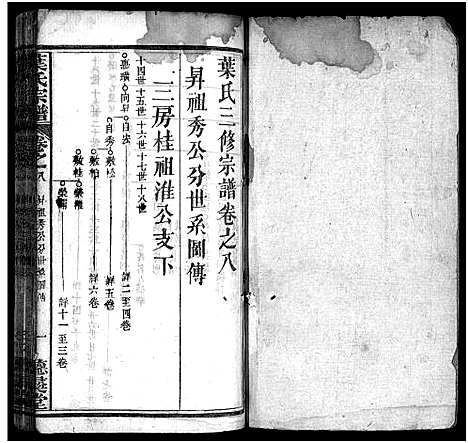 葉氏三修宗譜卷之八
昇祖秀公分世系圖傳
三房桂祖淮公支下
十四世 十五世 十六世 十七世 十八世
惠璜 向 自宏 詳二至四卷
自秀 敦松 詳五卷
敦柏 詳六卷
敦桂 榮 詳十一至三卷
葉氏宗譜 卷之八 昇祖秀公分世系圖傳 一